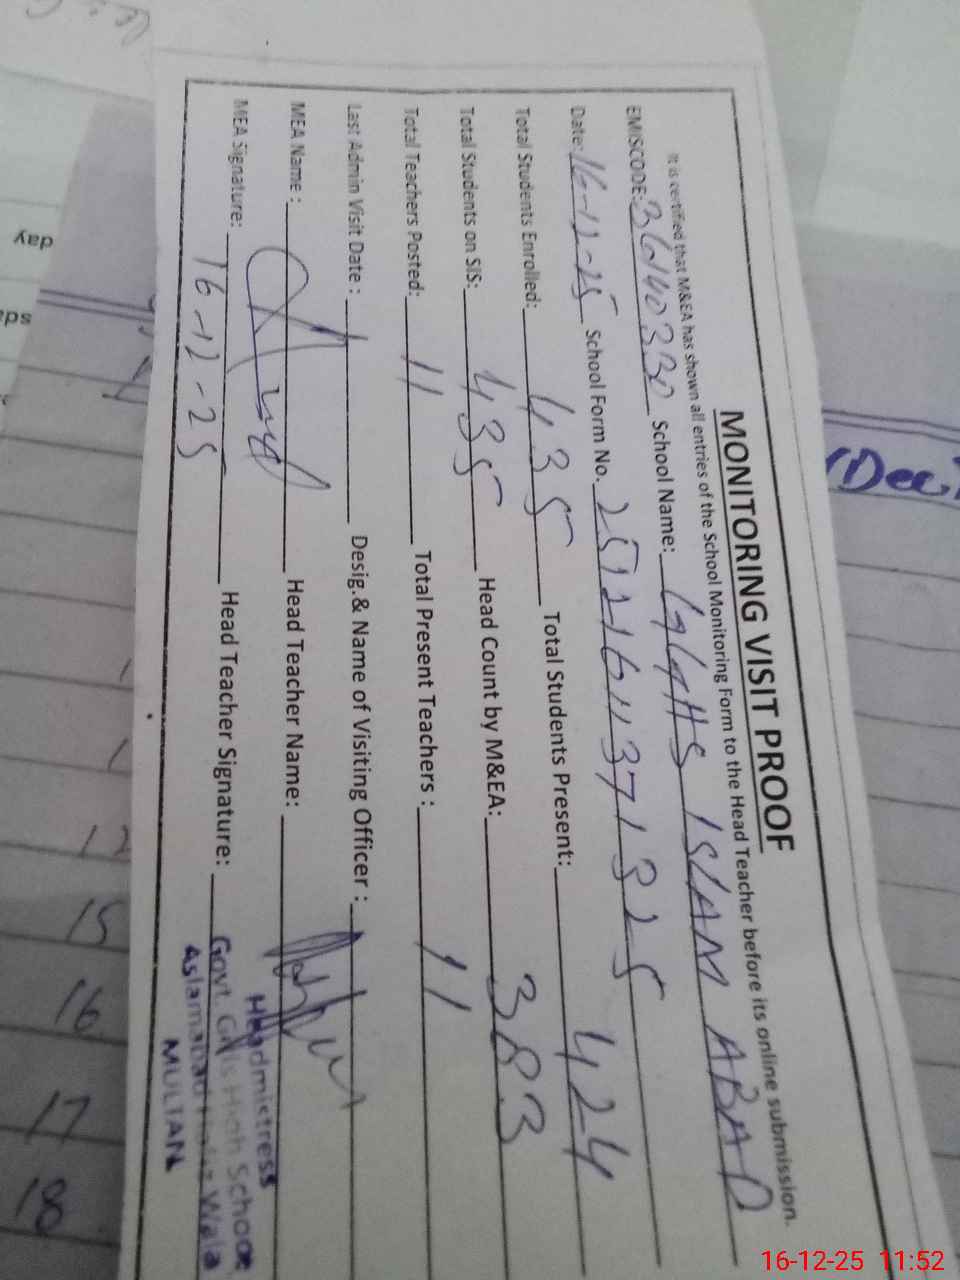 MONITORING VISIT PROOF
It is certified that M&EA has shown all entries of the School Monitoring Form to the Head Teacher before its online submission.
EMISCODE: 36140330 School Name: GGHS ISLAM ABAD
Date: 16-12-25 School Form No. 25121611371325
Total Students Enrolled: 435 Total Students Present: 424
Total Students on SIS: 435 Head Count by M&EA: 383
Total Teachers Posted: 11 Total Present Teachers : 11
Last Admin Visit Date : Desig.& Name of Visiting Officer :
MEA Name : Head Teacher Name:
MEA Signature: Head Teacher Signature:
16-12-25
Headmistress
Govt. Girls High School
MULTAN
(Dec
day
12
15
16
17
18
16-12-25 11:52